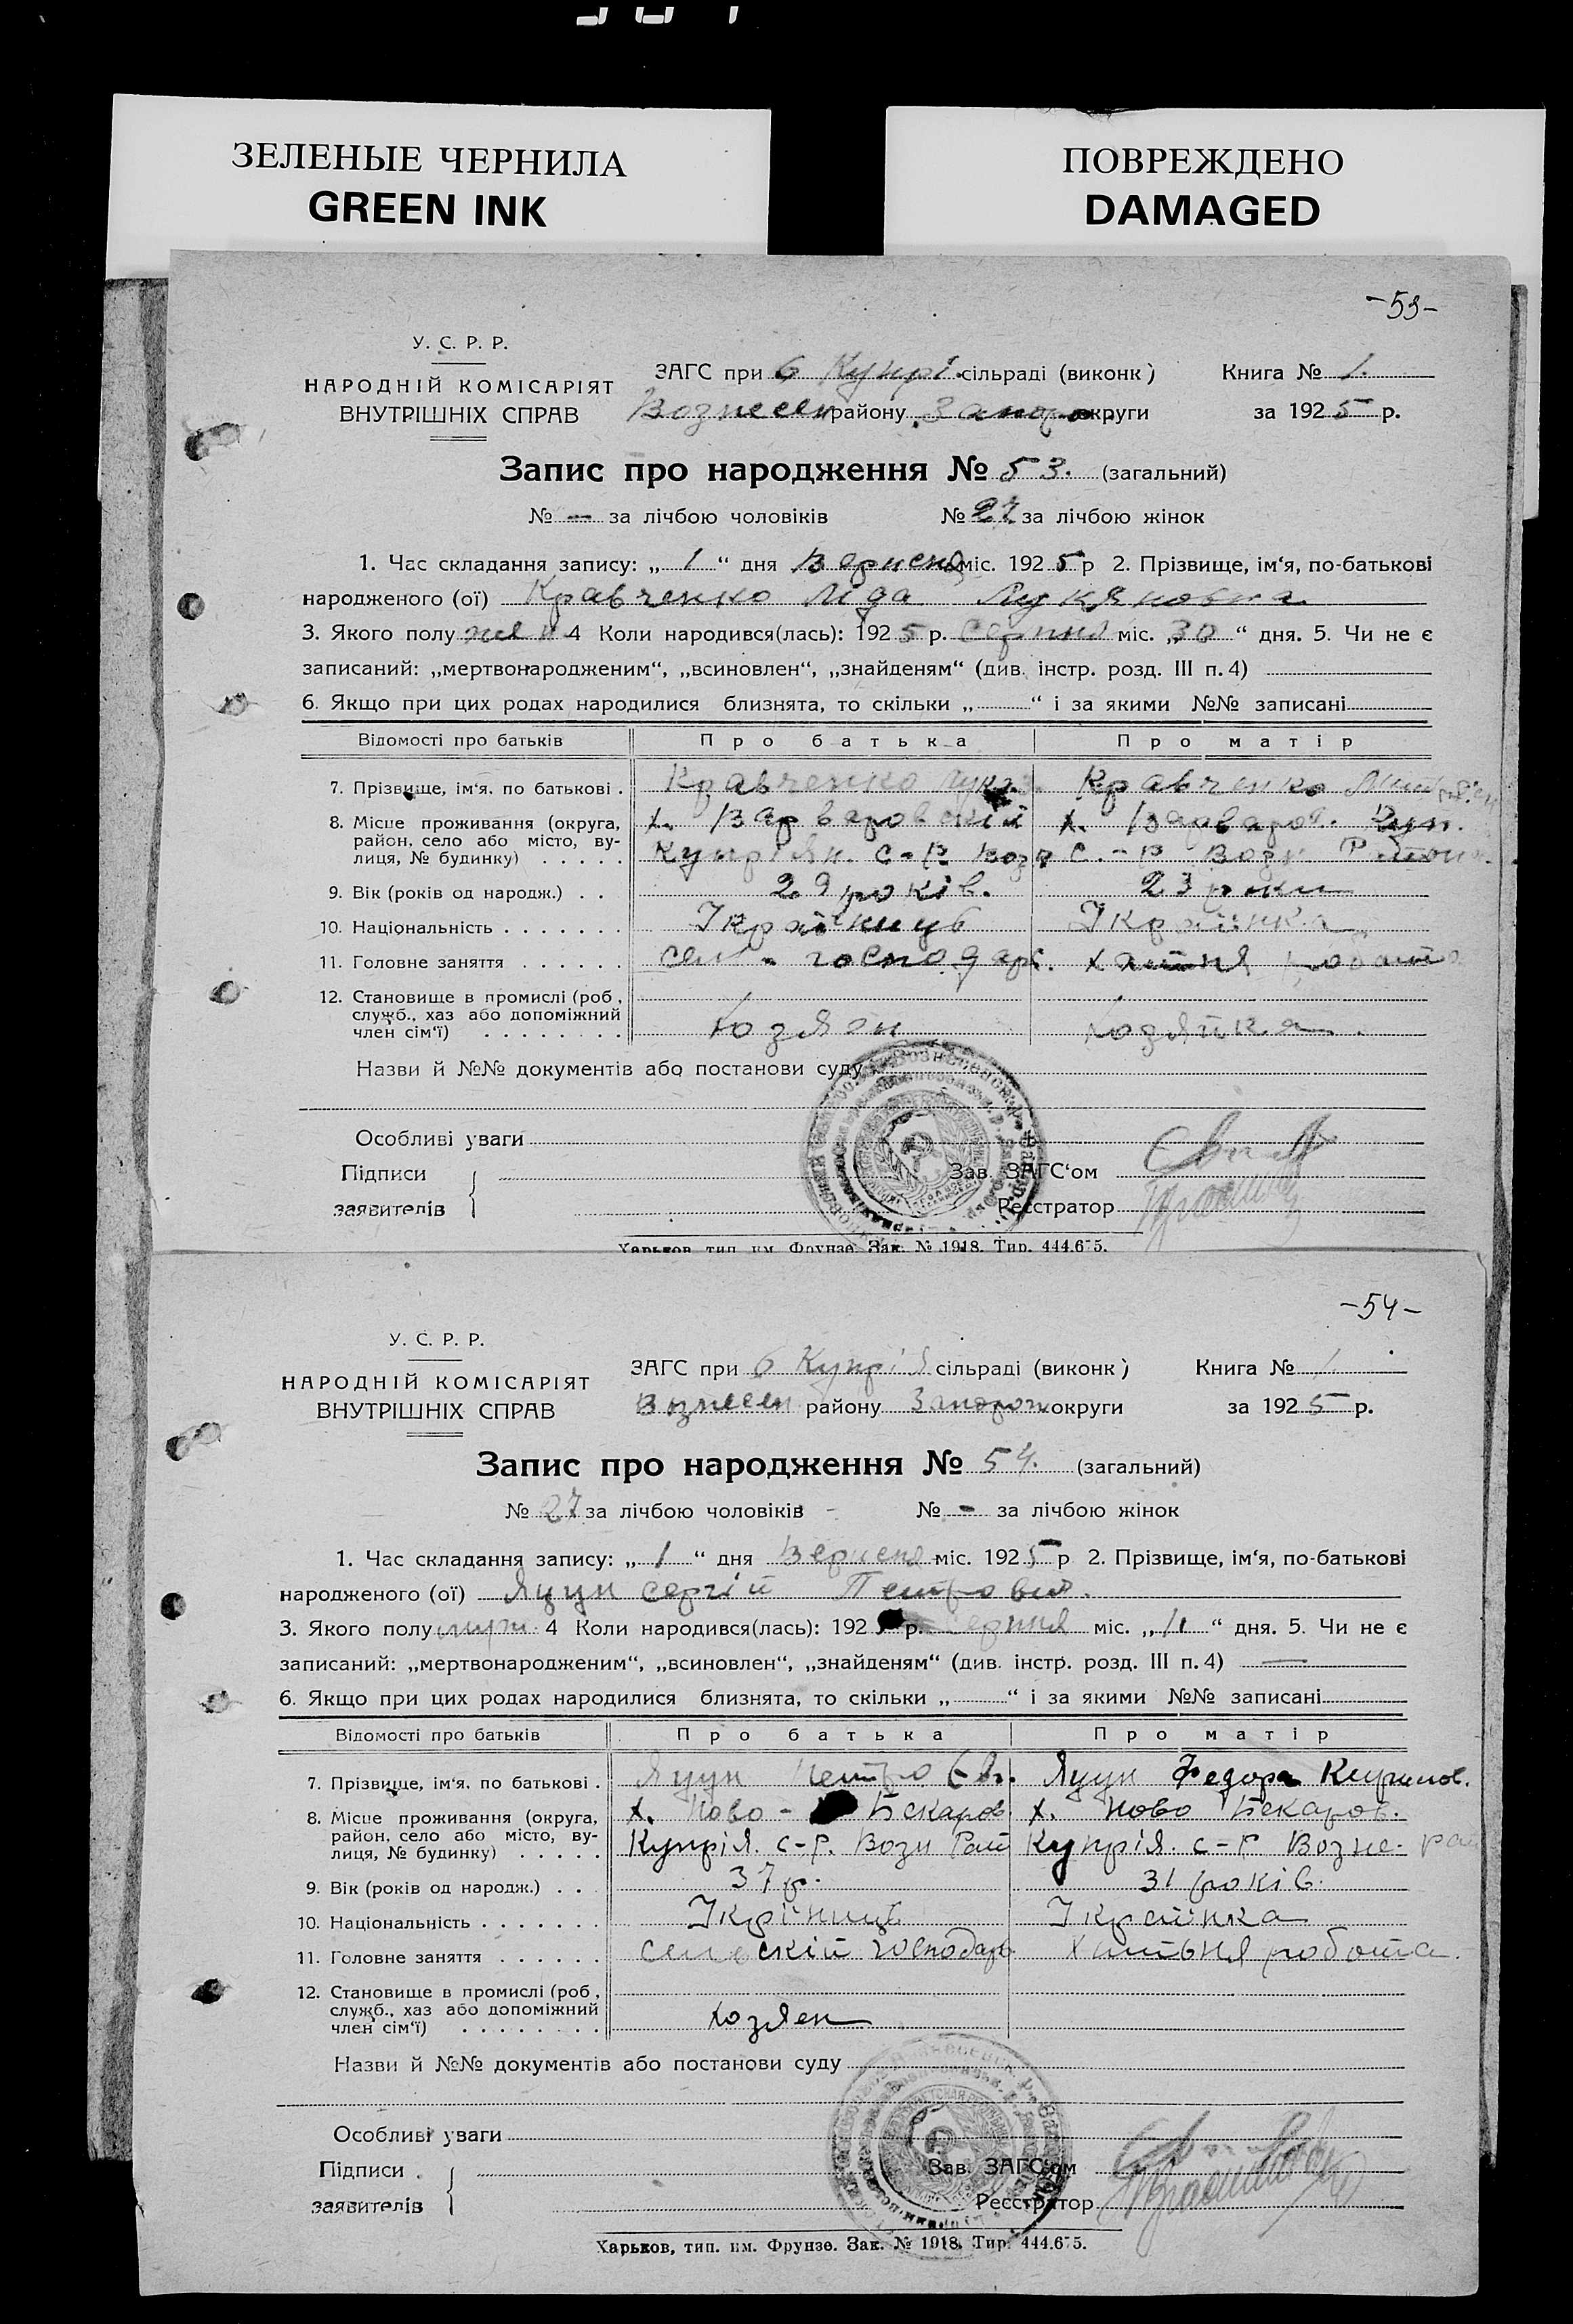 ЗЕЛЕНЫЕ ЧЕРНИЛА
GREEN INK
ПОВРЕЖДЕНО
DAMAGED
-53-
У. С. Р. Р.
НАРОДНІЙ КОМІСАРІЯТ
ВНУТРІШНІХ СПРАВ
ЗАГС при 6 Купрі. сільраді (виконк) Книга № 1.
Вознесен району Запор. округи за 1925 р.
Запис про народження № 53. (загальний)
№ — за лічбою чоловіків № 27. за лічбою жінок
1. Час складання запису: „ 1 “ дня Вересня міс. 1925 р 2. Прізвище, ім‘я, по-батькові
народженого (ої) Кравченко Ліда Лукяновна
3. Якого полу жен 4 Коли народився(лась): 1925 р. Серпня міс. „30“ дня. 5. Чи не є
записаний: „мертвонародженим“, „всиновлен“, „знайденям“ (див. інстр. розд. III п. 4)
6. Якщо при цих родах народилися близнята, то скільки „ “ і за якими №№ записані
Відомості про батьків Про батька Про матір
7. Прізвище, ім‘я. по батькові . Кравченко Лукя. Кравченко
8. Місце проживання (округа, район, село або місто, вулиця, № будинку) . . . . . х. Варваровскій х. Варваров. Куп.
Купріян. с-р. Возн с.-р Возн Району
9. Вік (років од народж.) . . 29 років. 23 роки
10. Національність . . . . . . . Україньць Українка
11. Головне заняття . . . . . . сел. господар. хатня робота
12. Становище в промислі (роб, служб., хаз або допоміжний член сім‘ї) . . . . . . . . Хозяэн Хозяйка
Назви й №№ документів або постанови суду
Особливі уваги
Підписи
заявителів
Зав. ЗАГС‘ом
Реєстратор
Харьков, тип. им. Фрунзе. Зак. № 1918. Тир. 444.675.
-54-
У. С. Р. Р.
НАРОДНІЙ КОМІСАРІЯТ
ВНУТРІШНІХ СПРАВ
ЗАГС при 6 Купрія сільраді (виконк) Книга № 1.
Вознесен району Запорож округи за 1925 р.
Запис про народження № 54. (загальний)
№ 27 за лічбою чоловіків № - за лічбою жінок
1. Час складання запису: „ 1 “ дня Вересня міс. 1925 р 2. Прізвище, ім‘я, по-батькові
народженого (ої) Яцун Сергій Петрович.
3. Якого полу муж. 4 Коли народився(лась): 1925 р. Серпня міс. „11“ дня. 5. Чи не є
записаний: „мертвонародженим“, „всиновлен“, „знайденям“ (див. інстр. розд. III п. 4) —
6. Якщо при цих родах народилися близнята, то скільки „ “ і за якими №№ записані
Відомості про батьків Про батька Про матір
7. Прізвище, ім‘я. по батькові . Яцун Петро Яцун Федора Кирилов.
8. Місце проживання (округа, район, село або місто, вулиця, № будинку) . . . . . х. Ново - Бекаров х. Ново Бекаров.
Купрія. с-р. Возн Рай Купрія. с-р Возне. рай
9. Вік (років од народж.) . . 37 р. 31 років.
10. Національність . . . . . . . Украінець Українка
11. Головне заняття . . . . . . селеский господарь Хатьня робота.
12. Становище в промислі (роб, служб., хаз або допоміжний член сім‘ї) . . . . . . . . Хозяен
Назви й №№ документів або постанови суду
Особливі уваги
Підписи
заявителів
Зав. ЗАГС‘ом
Реєстратор
Харьков, тип. им. Фрунзе. Зак. № 1918. Тир. 444.675.